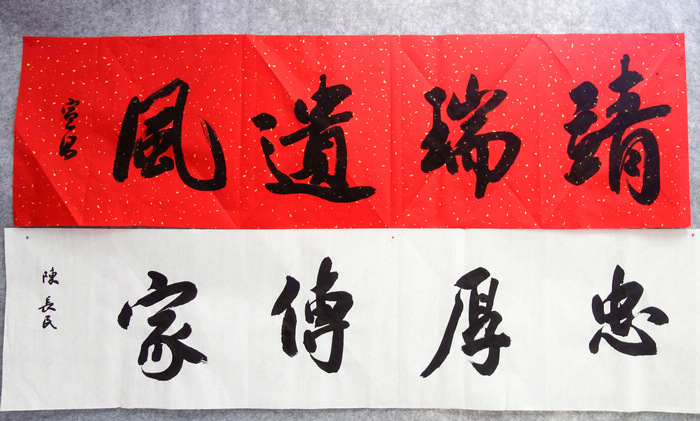 靖瑞遺風
忠厚傳家
陳長民